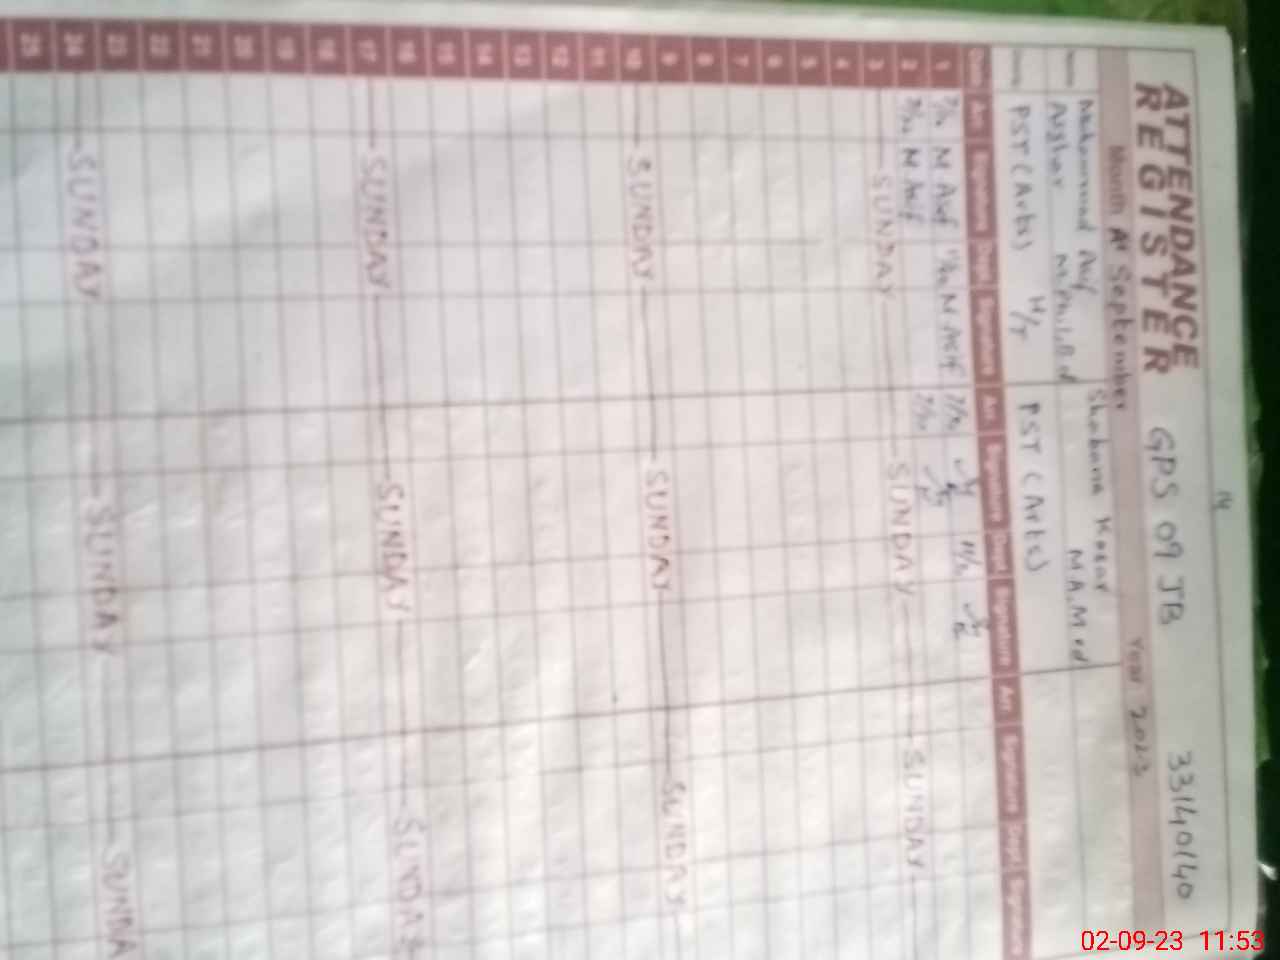 14
ATTENDANCE
REGISTER
GPS 09 JB
33140140
Month
September
Year 2023
Name
Muhammad Asif
Asghar
M.Phil, B.ed
Shabana Kosar
M.A. M.ed
PST (Arts) H/T
PST (Arts)
Date Arr. Signature Dept. Signature Arr. Signature Dept. Signature Arr. Signature Dept. Signature
1 M Asif M Asif
2 M Asif
3 SUNDAY SUNDAY SUNDAY
4
5
6
7
8
9
10 SUNDAY SUNDAY SUNDAY
11
12
13
14
15
16
17 SUNDAY SUNDAY SUNDAY
18
19
20
21
22
23
24 SUNDAY SUNDAY SUNDA
25
02-09-23 11:53